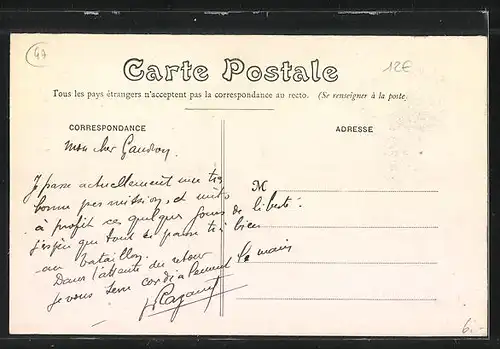 47
12€
Carte Postale
Tous les pays étrangers n'acceptent pas la correspondance au recto. (Se renseigner à la poste)
CORRESPONDANCE
ADRESSE
Mon cher Gaudron,
Je passe actuellement une très
bonne permission et mets
à profit ces quelques jours de liberté.
J'espère que tout se passe très bien
au bataillon.
Dans l'attente du retour
je vous serre cordialement la main
M
6.-